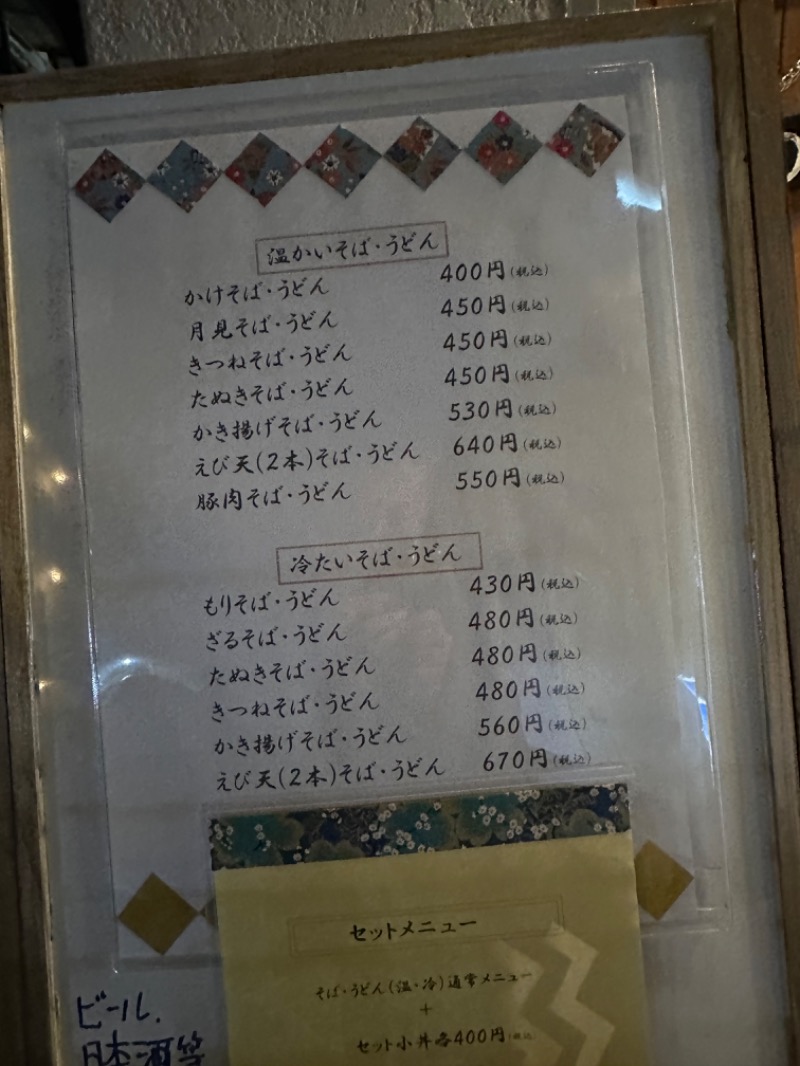 温かいそば・うどん
かけそば・うどん 400円(税込)
月見そば・うどん 450円(税込)
きつねそば・うどん 450円(税込)
たぬきそば・うどん 450円(税込)
かき揚げそば・うどん 530円(税込)
えび天(2本)そば・うどん 640円(税込)
豚肉そば・うどん 550円(税込)
冷たいそば・うどん
もりそば・うどん 430円(税込)
ざるそば・うどん 480円(税込)
たぬきそば・うどん 480円(税込)
きつねそば・うどん 480円(税込)
かき揚げそば・うどん 560円(税込)
えび天(2本)そば・うどん 670円(税込)
セットメニュー
そば・うどん(温・冷)通常メニュー
+
セット小丼各400円(税込)
ビール.
日本酒等